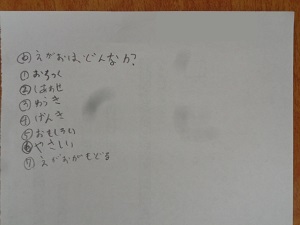 ⓪えがおは、どんなか?
①おちつく
②しあわせ
③わらき
④げんき
⑤おもしろい
⑥やさしい
⑦えがおがもどる